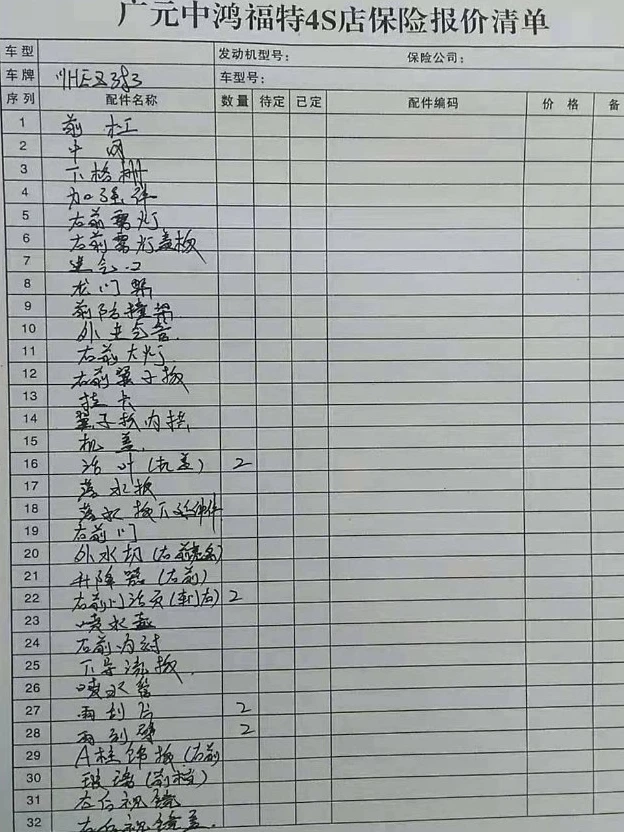 广元中鸿福特4S店保险报价清单
车型 发动机型号： 保险公司：
车牌 车型号：
序列 配件名称 数量 待定 已定 配件编码 价 格 备
1 前 杠
2 中 网
3 下格栅
4 加强件
5 右前雾灯
6 右前雾灯盖板
7 进气口
8 龙门架
9 前防撞梁
10 外进气管
11 右前大灯
12 右前翼子板
13 挂卡
14 翼子板内衬
15 机 盖
16 活 叶 (机盖) 2
17 落水板
18 落水板下
19 右前门
20 外水切 (右前
21 升降器 (右前)
22 右前门活页 2
23 喷水壶
24 右前内衬
25 下导流板
26 喷水管
27 雨刮片 2
28 雨刮臂 2
29 A柱饰板 (右前
30 玻璃 (前档)
31 右后视镜
32 右后视镜盖